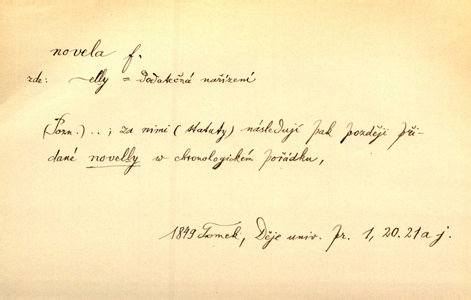 novela f.
zde: -elly = dodatečná nařízení
(Pozn.)..; za nimi (statuty) následují pak později při-
dané novelly w chronologickém pořádku,
1849 Tomek, Děje univ. pr. 1, 20. 21 a j.